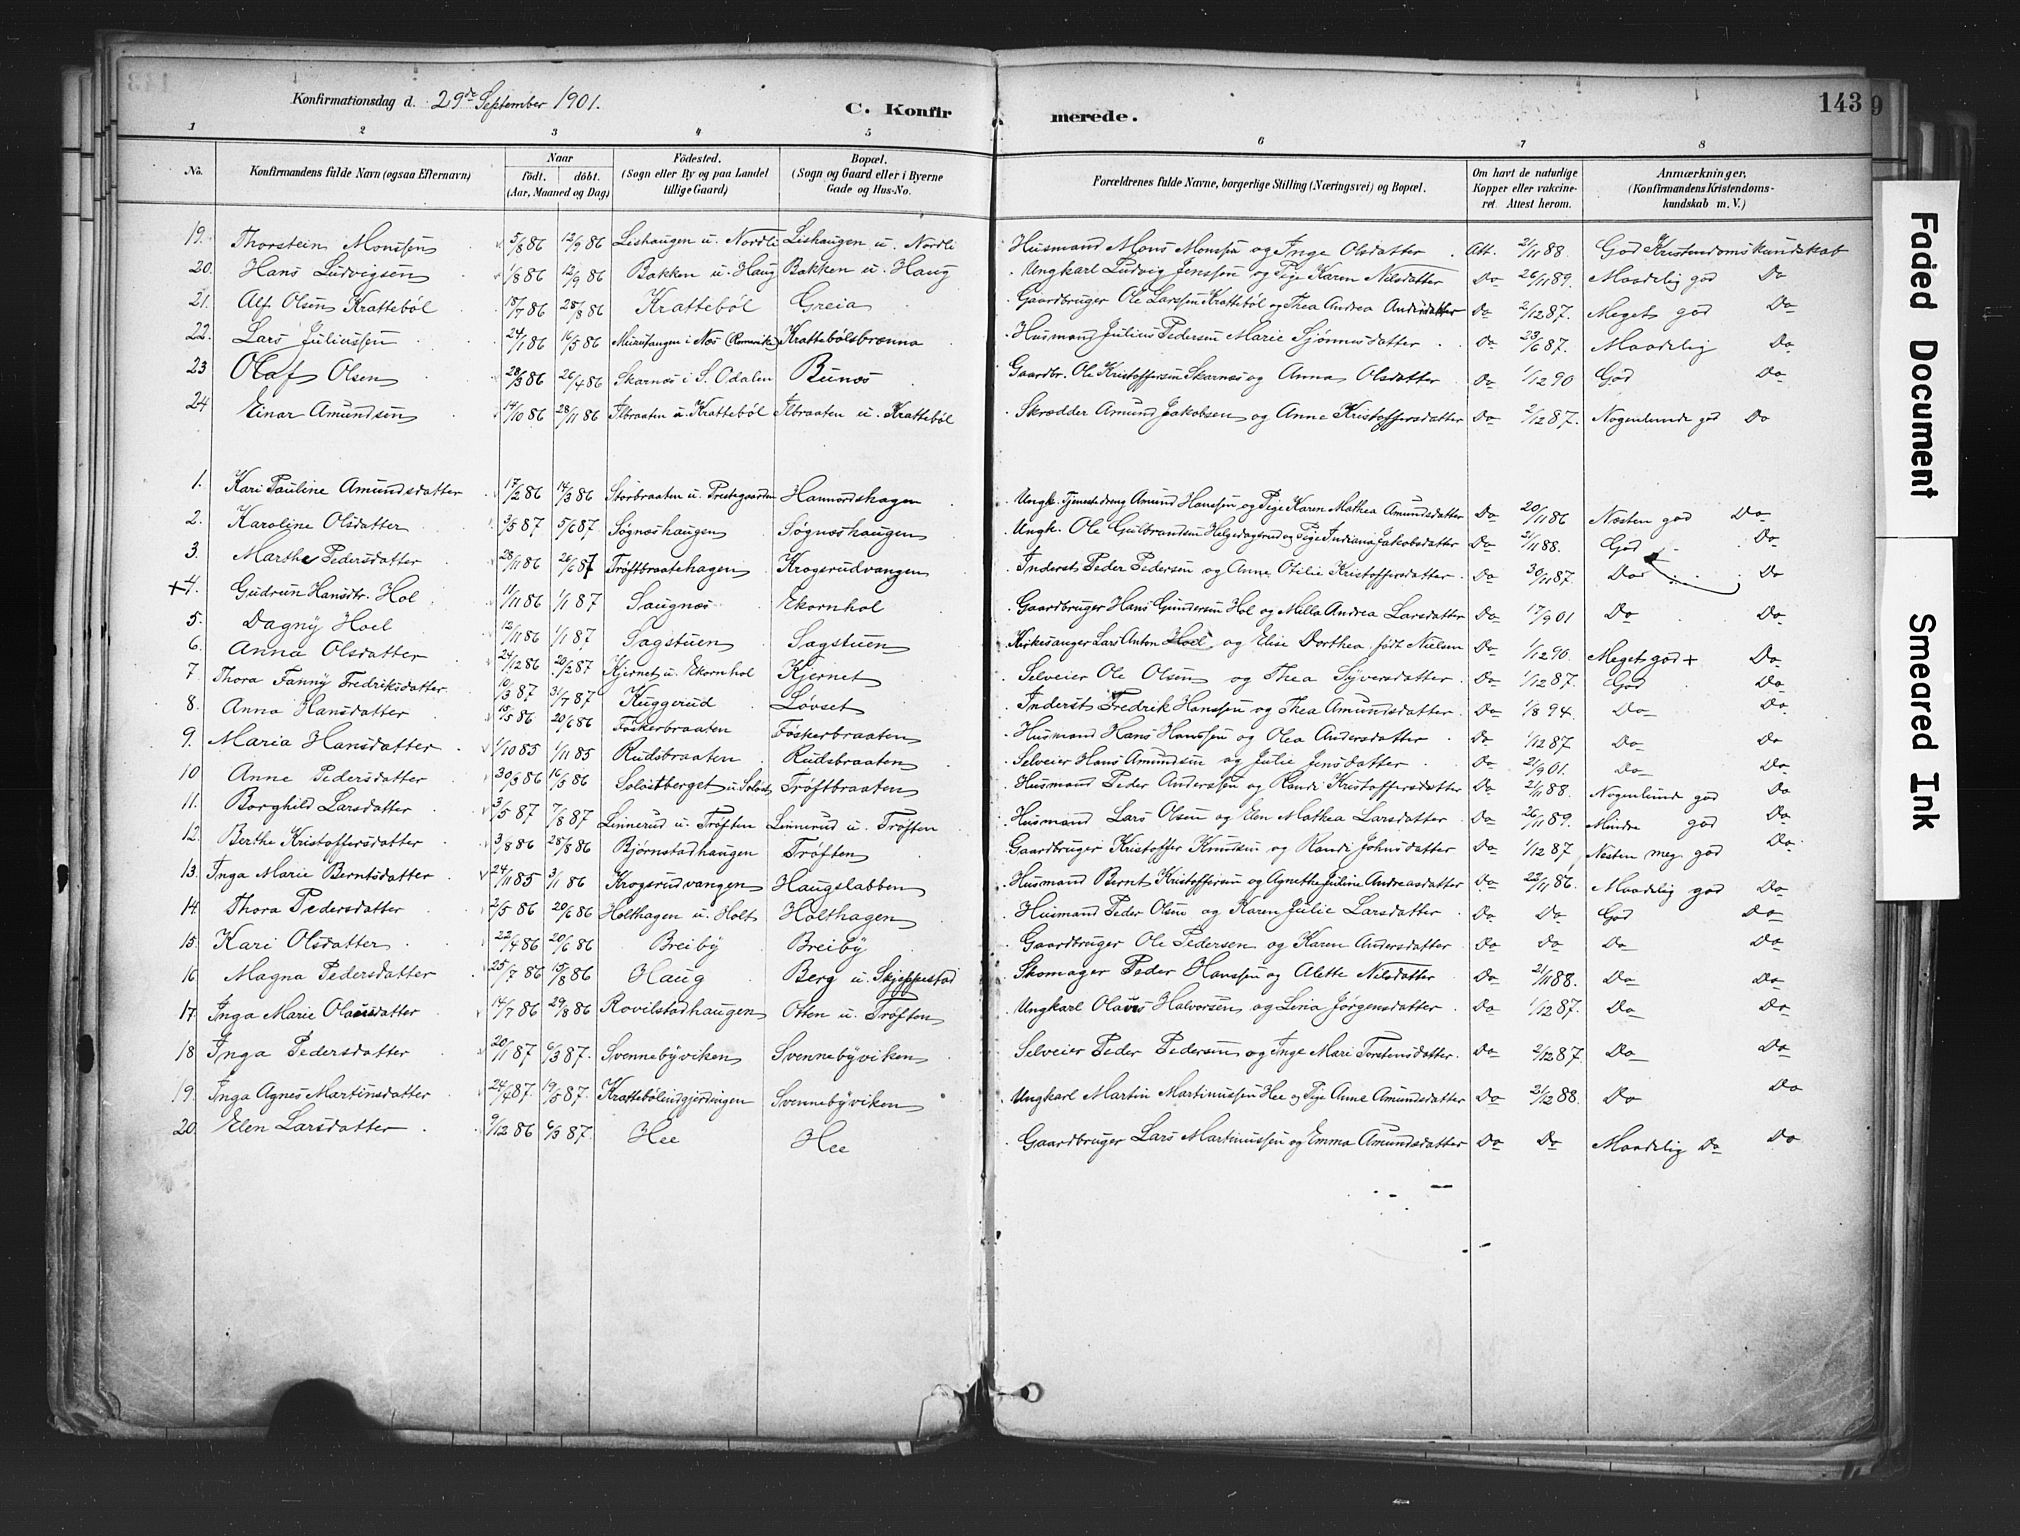 Konfirmationsdag d. 29de September 1901.
C. Konfirmerede.
143
9
1 2 3 4 5 6 7 8
No. Konfirmandens fulde Navn (ogsaa Efternavn) Naar födt. döbt. (Aar, Maaned og Dag) Födested. (Sogn eller By og paa Landet tillige Gaard) Bopæl. (Sogn og Gaard eller i Byerne Gade og Hus-No. Forældrenes fulde Navne, borgerlige Stilling (Næringsvei) og Bopæl. Om havt de naturlige Kopper eller vakcineret. Attest herom. Anmærkninger. (Konfirmandens Kristendomskundskab m. V.)
19. Thorstein Monssen 5/8 86 12/9 86 Lishaugen u. Nordli Lishaugen u. Nordli Husmand Mons Monssen og Inge Olsdatter Att. 2/11 88. God Kristendomskundskab
20. Hans Ludvigsen 1/8 86 12/9 86 Bakken u. Haug Bakken u. Haug Ungkarl Ludvig Jenssen og Pige Karen Nilsdatter Do 26/11 89. Maadelig god Do
21. Alf Olsen Kratteböl 18/7 86 28/8 86 Kratteböl Greia Gaardbruger Ole Larssen Kratteböl og Thea Andrea Andersdatter Do 2/12 87. Meget god Do
22. Lars Juliussen 24/1 86 16/5 86 i Næs Krattebölsbrænna Husmand Julius Pedersen Marie Sjönnesdatter Do 23/6 87. Maadelig Do
23 Olaf Olsen 28/3 86 26/4 86 Skarnæs i S. Odalen Bunæs Gaardbr. Ole Kristoffersen Skarnæs og Anna Olsdatter Do 1/12 90 God Do
24 Einar Amundsen 14/10 86 28/11 86 Ilbraaten u. Kratteböl Ilbraaten u. Kratteböl Skrædder Amund Jakobsen og Anne Kristoffersdatter Do 2/12 87. Nogenlunde god Do
1. Kari Pauline Amundsdatter 17/2 86 14/3 86 Storbraaten u. Prestegaarden Hammershagen Ungk. Tjenestedreng Amund Hanssen og Pige Karen Mathea Amundsdatter Do 20/11 86 Næsten god Do
2. Karoline Olsdatter 3/5 87 5/6 87 Sögnæshaugen Sögnæshaugen Ungk. Ole Gulbrandsen Helgedagsrud og Pige Indiana Jakobsdatter Do 2/11 88. God Do
3. Marthe Pedersdatter 28/11 86 26/6 87 Tröftbraatehagen Krogsrudvangen Inderst Peder Pedersen og Anne Otilie Kristoffersdatter Do 30/11 87. Do Do
+4. Gudrun Hansdtr. Hol 11/11 86 1/1 87 Saugnæs Ekornhol Gaardbruger Hans Gundersen Hol og Milla Andrea Larsdatter Do 17/9 01 Do Do
5. Dagny Hoel 12/11 86 1/1 87 Sagstuen Sagstuen Kirkesanger Lars Anton Hoel og Elise Dorthea födt Nielsen Do 1/12 90. Meget god + Do
6. Anna Olsdatter 24/12 86 20/2 87 Kjernet u. Ekornhol Kjernet Selveier Ole Olsen og Thea Syversdatter Do 1/12 87. God Do
7. Thora Fanny Fredriksdatter 10/3 87 31/7 87 Kuggerud Lövset Inderst Fredrik Hanssen og Thea Amundsdatter Do 1/8 94. Do Do
8. Anna Hansdatter 15/5 86 20/6 86 Föskerbraaten Föskerbraaten Husmand Hans Hanssen og Olea Andersdatter Do 1/12 87 Do Do
9. Maria Hansdatter 1/10 85 1/11 85 Rudsbraaten Rudsbraaten Selveier Hans Amundsen og Julie Jensdatter Do 21/9 01. Do Do
10 Anne Pedersdatter 30/3 86 16/5 86 Soloistberget u. Tröftbraaten Husmand Peder Anderssen og Randi Kristoffersdatter Do 2/11 88. Nogenlunde god Do
11. Borghild Larsdatter 3/5 87 7/8 87 Linnerud u. Tröften Linnerud u. Tröften Husmand Lars Olsen og Elen Mathea Larsdatter Do 26/11 89. Mindre god Do
12. Berthe Kristoffersdatter 3/8 86 28/8 86 Bjørnstadhaugen Tröften Gaardbruger Kristoffer Knudsen og Randi Johnsdatter Do 1/12 87 Næsten meg god Do
13. Inga Marie Berntsdatter 24/11 85 3/1 86 Krogsrudvangen Haugslabben Husmand Bernt Kristoffersen og Agnethe Juline Andreasdatter Do 22/11 86. Maadelig god Do
14. Thora Pedersdatter 2/5 86 20/6 86 Holthagen u. Holt Holthagen Husmand Peder Olsen og Karen Julie Larsdatter Do Do God Do
15. Kari Olsdatter 22/4 86 20/6 86 Breiby Breiby Gaardbruger Ole Pedersen og Karen Andersdatter Do do Do Do
16 Magna Pedersdatter 25/7 86 15/8 86 Haug Berg u. Skjeppestad Skomager Peder Hanssen og Alette Nilsdatter Do 2/11 88. Do Do
17. Inga Marie Olausdatter 14/7 86 29/8 86 Rovilstadhaugen Otten u. Tröften Ungkarl Olaus Halvorsen og Lina Jörgensdatter Do 1/12 87. Do Do
18 Inga Pedersdatter 20/11 87 6/3 87. Svennebyviken Svennebyviken Selveier Peder Pedersen og Inge Mari Torstensdatter Do 2/12 87. Do Do
19. Inga Agnes Martinsdatter 24/4 87. 19/5 87. Krattebölindgjerdingen Svennebyviken Ungkarl Martin Martinussen Hee og Pige Anne Amundsdatter Do 2/12 88. Do Do
20. Elen Larsdatter 9/12 86 6/3 87. Hee Hee Gaardbruger Lars Martinussen og Emma Amundsdatter Do Do Maadelig Do Do
Faded Document Smeared Ink